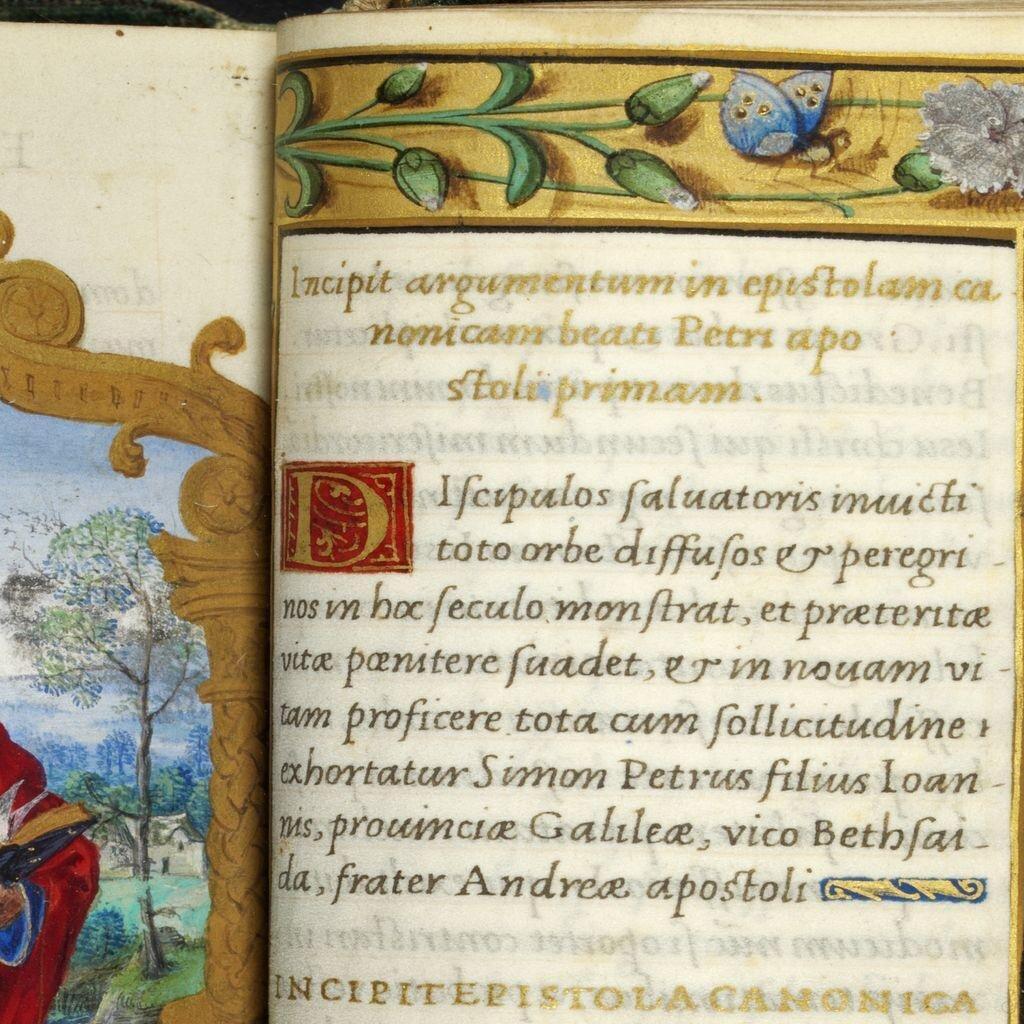 Incipit argumentum in epistolam ca
nonicam beati Petri apo
stoli primam.
DIscipulos saluatoris inuicti
toto orbe diffusos & peregri-
nos in hoc seculo monstrat, et præteritæ
vitæ pœnitere suadet, & in nouam vi-
tam proficere tota cum sollicitudine,
exhortatur Simon Petrus filius Ioan-
nis, prouinciæ Galileæ, vico Bethsai-
da, frater Andreæ apostoli
INCIPIT EPISTOLA CANONICA